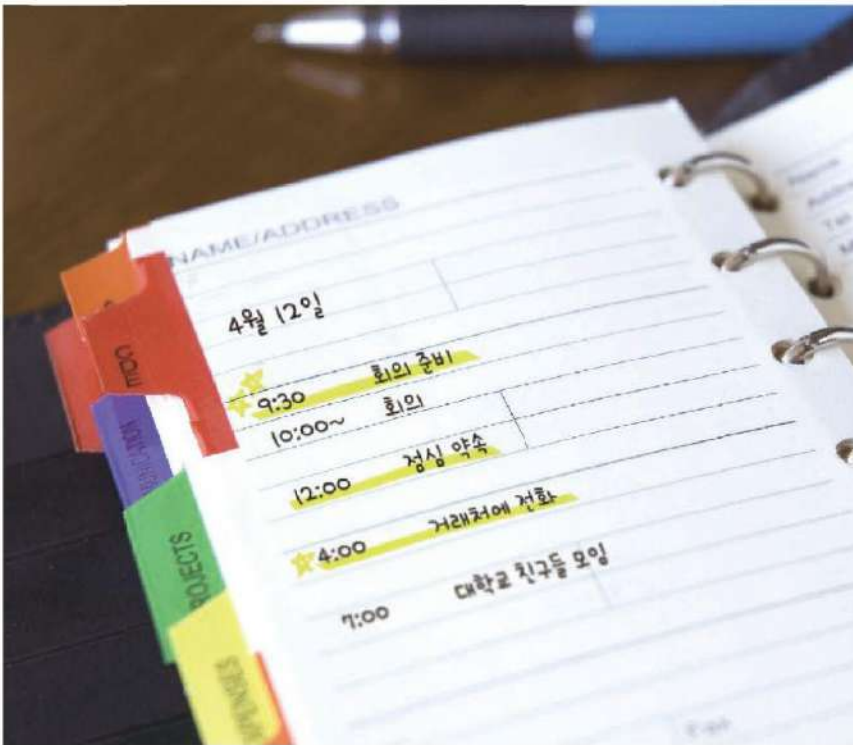 NAME/ADDRESS
4월 12일
9:30 회의 준비
10:00~ 회의
12:00 점심 약속
4:00 거래처에 전화
7:00 대학교 친구들 모임
PROJECTS
Fax
Name
Tel